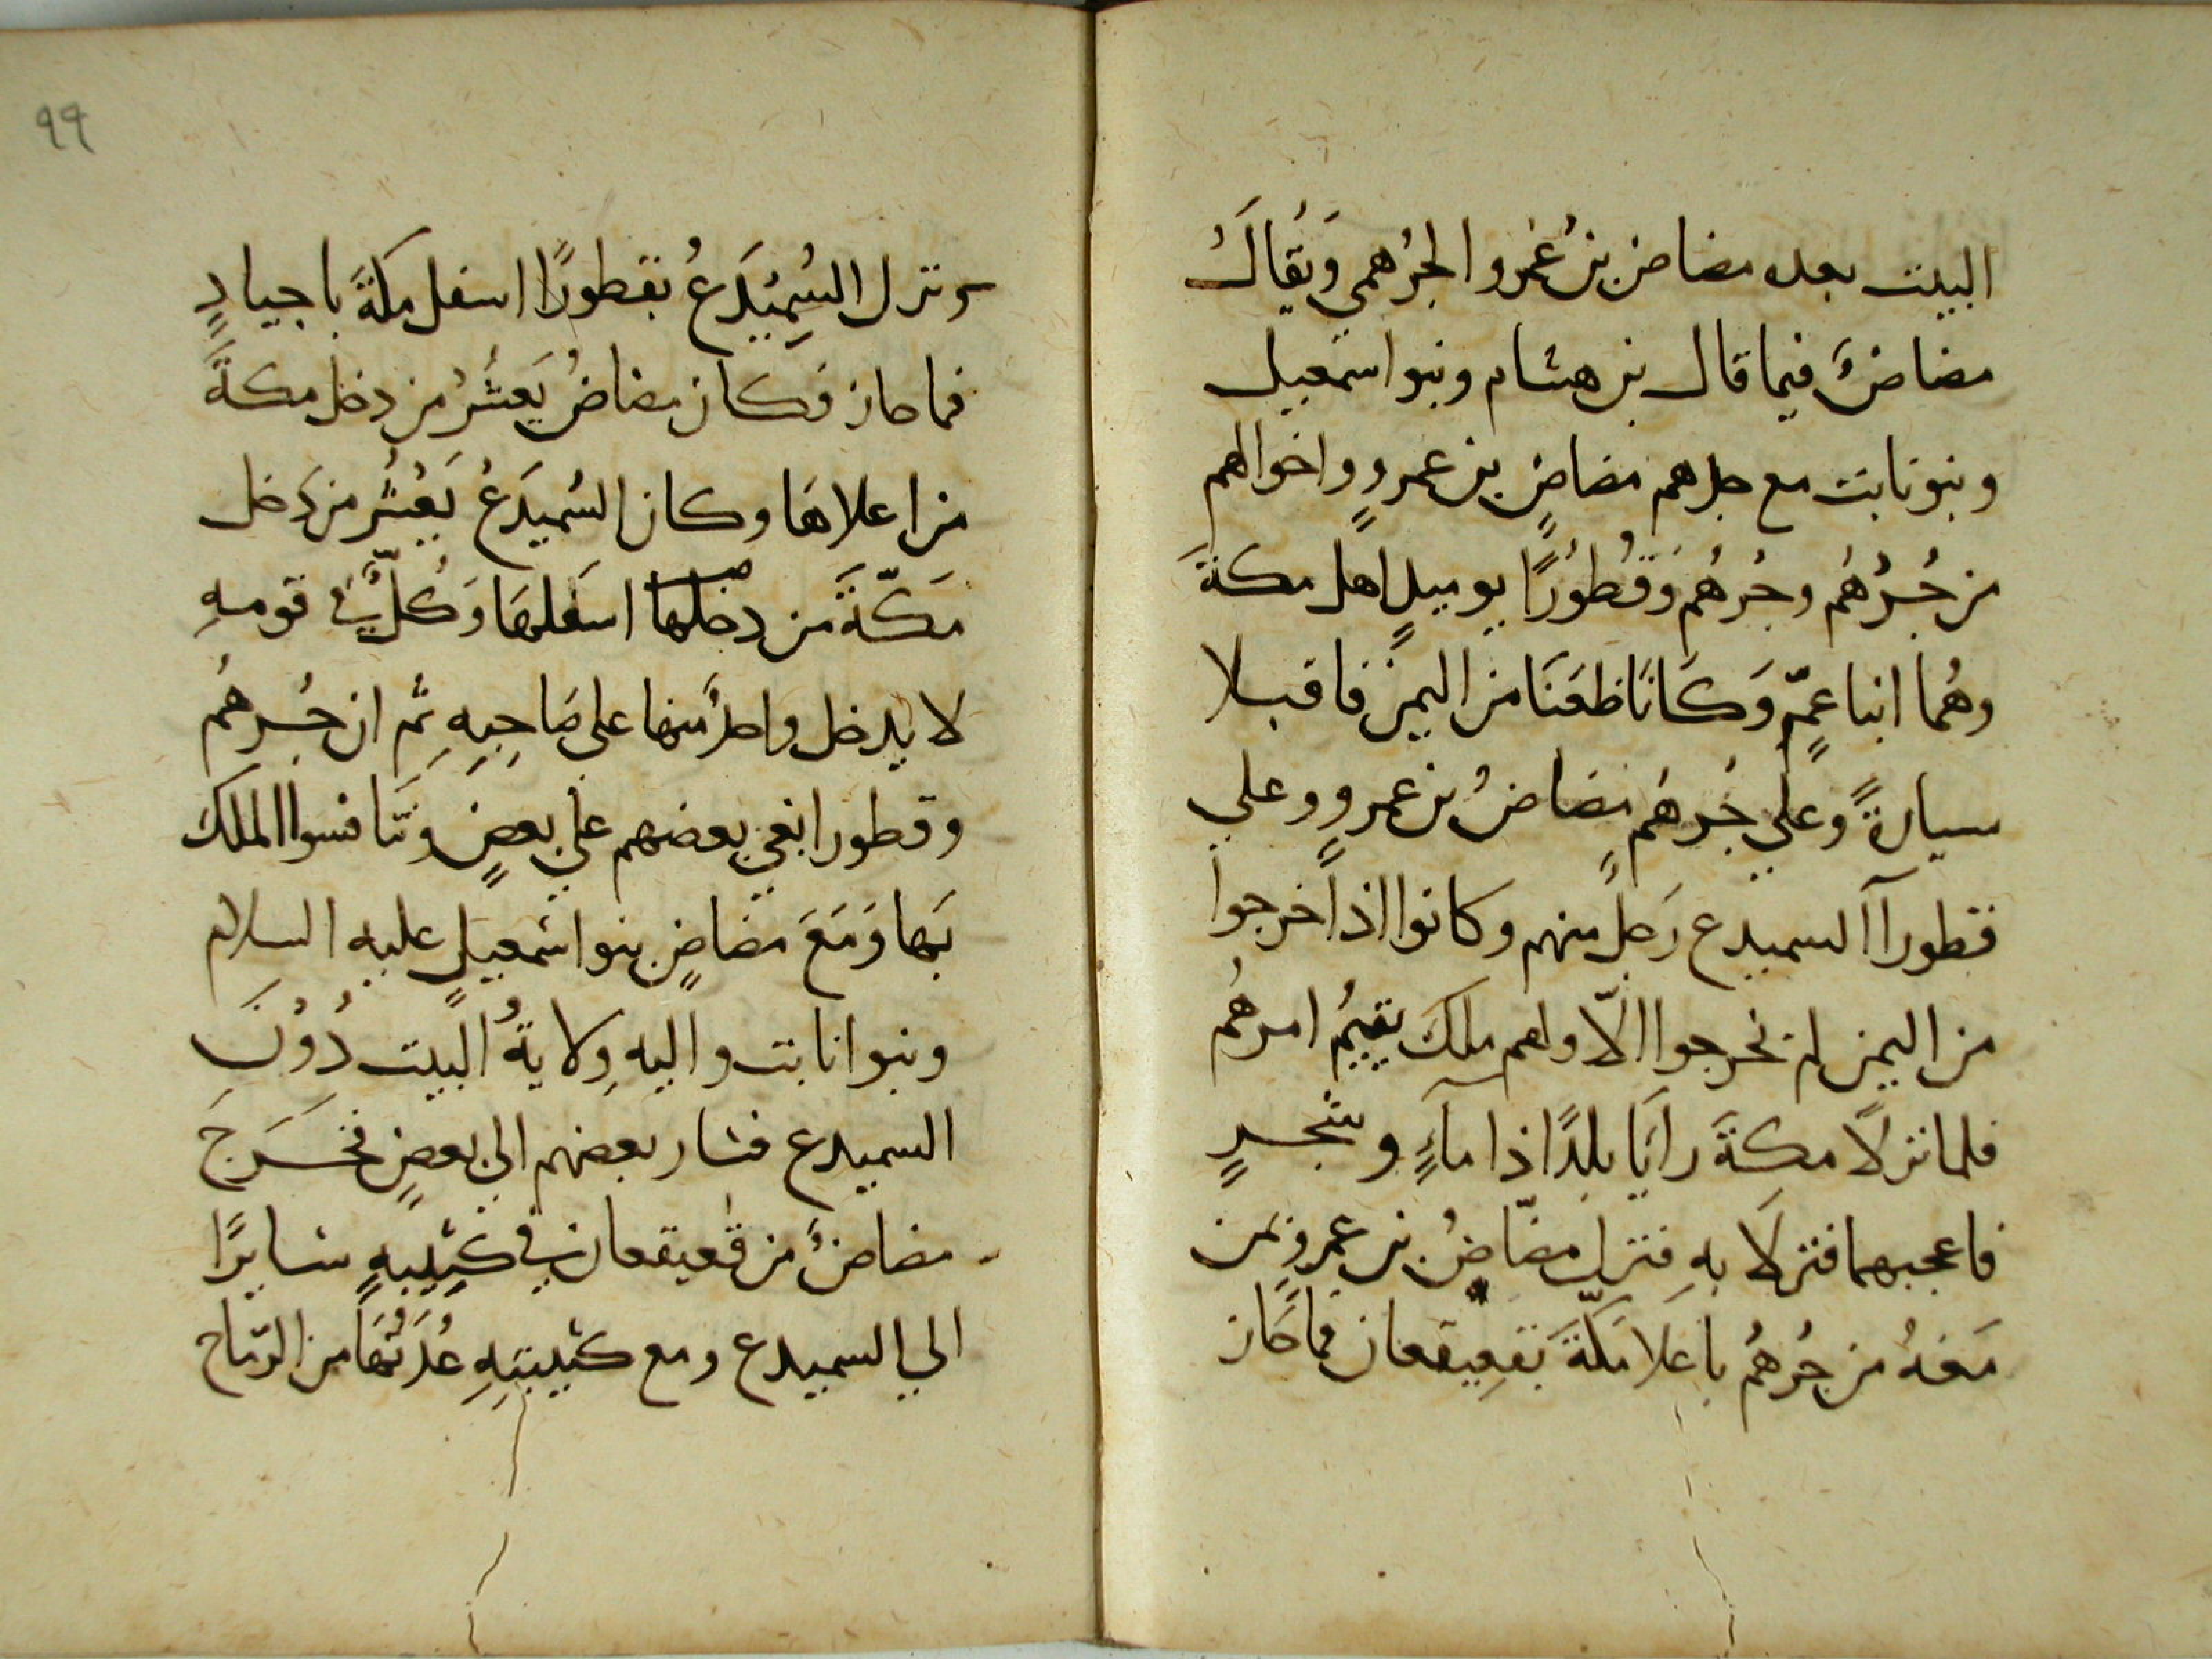 البيت بعد مضاض بنُ عَمرو الجرُهمي وَيُقالُ
مضاضٌ فيما قال بن هشام وبنو اسمعيل
وبنو نابت مع جدهم مضاضٍ بن عمروٍ واخوالهم
من جُرْهُم وجُرهُم وَقُطُورًا يوميذٍ اهل مكةَ
وهُما ابنا عمٍّ وَكَانَا ظعَنَا من اليمن فاقبلا
سيارةً وعلي جُرهُمٍ مضاضُ بن عمروٍ وعلي
قطورآ السميدع رَجلٌ منهم وكانوا اذا خرجوا
من اليمن لم يخرجوا الّا ولهم ملك يقيمُ امرهُم
فلما نزلَا مكةَ رايَا بلدًا ذا مآءٍ وشجرٍ
فاعجبهما فنزلَا بهِ فنزل مضّاضُ بن عمروٍ بمن
مَعهُ من جُرهُم باعلا مكّةَ بقعِيقعان فما حَاز
ونزل السُميْدَعُ بقطورًا اسفل مكةَ باجيادٍ
فما حاز فكان مضاضُ يَعشُرُ من دخل مكةَ
من اعلاهَا وكان السُميدَعُ يَعْشُر من دَخل
مَكّةَ من دخلها اسفلهَا وَكُلٌّ في قومهِ
لا يدخل واحدٌ منهما على صَاحِبِهِ ثم ان جُرهُم
وقطورا بغي بعضهم علي بعضٍ وتنافسوا الملك
بَها وَمَعَ مضاضٍ بنوا سمعيل عليه السلام
وبنوا نابت واليهِ وِلايةُ البيت دُوْنَ
السميدع فسَار بعضهم الي بعضٍ فخرَجَ
مضاضٌ من قُعيقعان في كتيبهٍ سَايرًا
الي السميدع ومع كتيبتِهِ عُدَتُهَا من الرّماح
٩٩